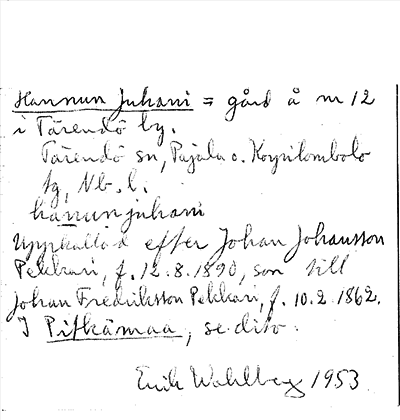 Hannun Juhani = gård å nr 12
i Tärendö by.
Tärendö sn, Pajala o. Korpilombolo
tg, Nb. l.
hanunjuhani
Uppkallad efter Johan Johansson
Pekkari, f. 12.8.1890, son till
Johan Fredriksson Pekkari, f. 10.2.1862.
I Pitkämaa, se dito.
Erik Wahlberg 1953